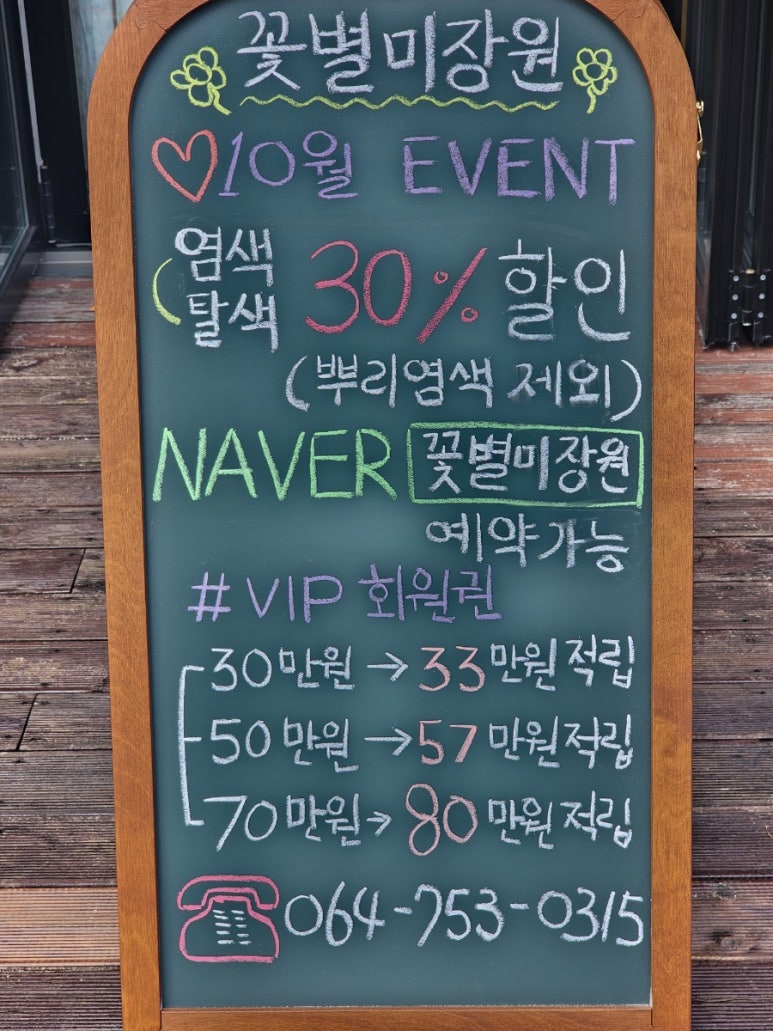 꽃별미장원
10월 EVENT
염색
탈색 30% 할인
(뿌리염색 제외)
NAVER 꽃별미장원
예약가능
#VIP 회원권
30만원 → 33만원 적립
50만원 → 57만원 적립
70만원 → 80만원 적립
064-753-0315